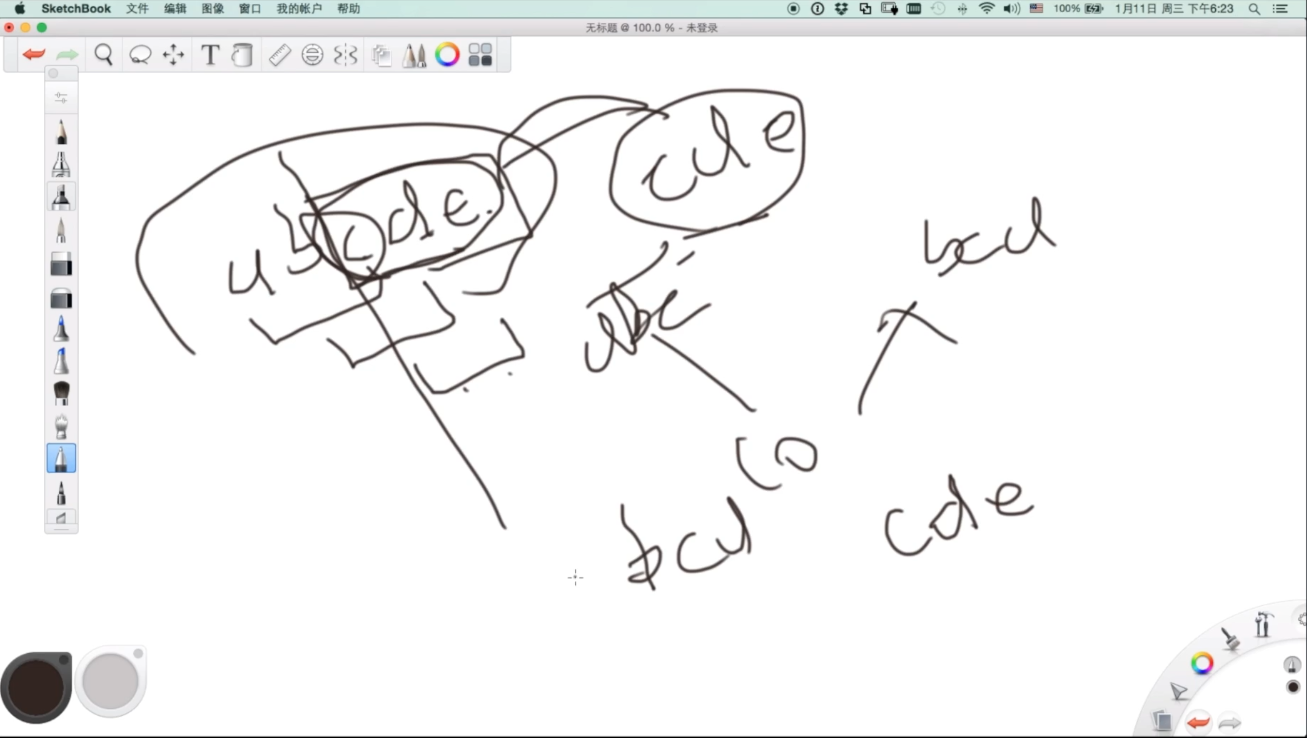 SketchBook 文件 编辑 图像 窗口 我的帐户 帮助 100% 1月11日 周三 下午6:23
无标题 @ 100.0 % - 未登录
T
cde
abcde.
bcd
abc
co
cde
bcd